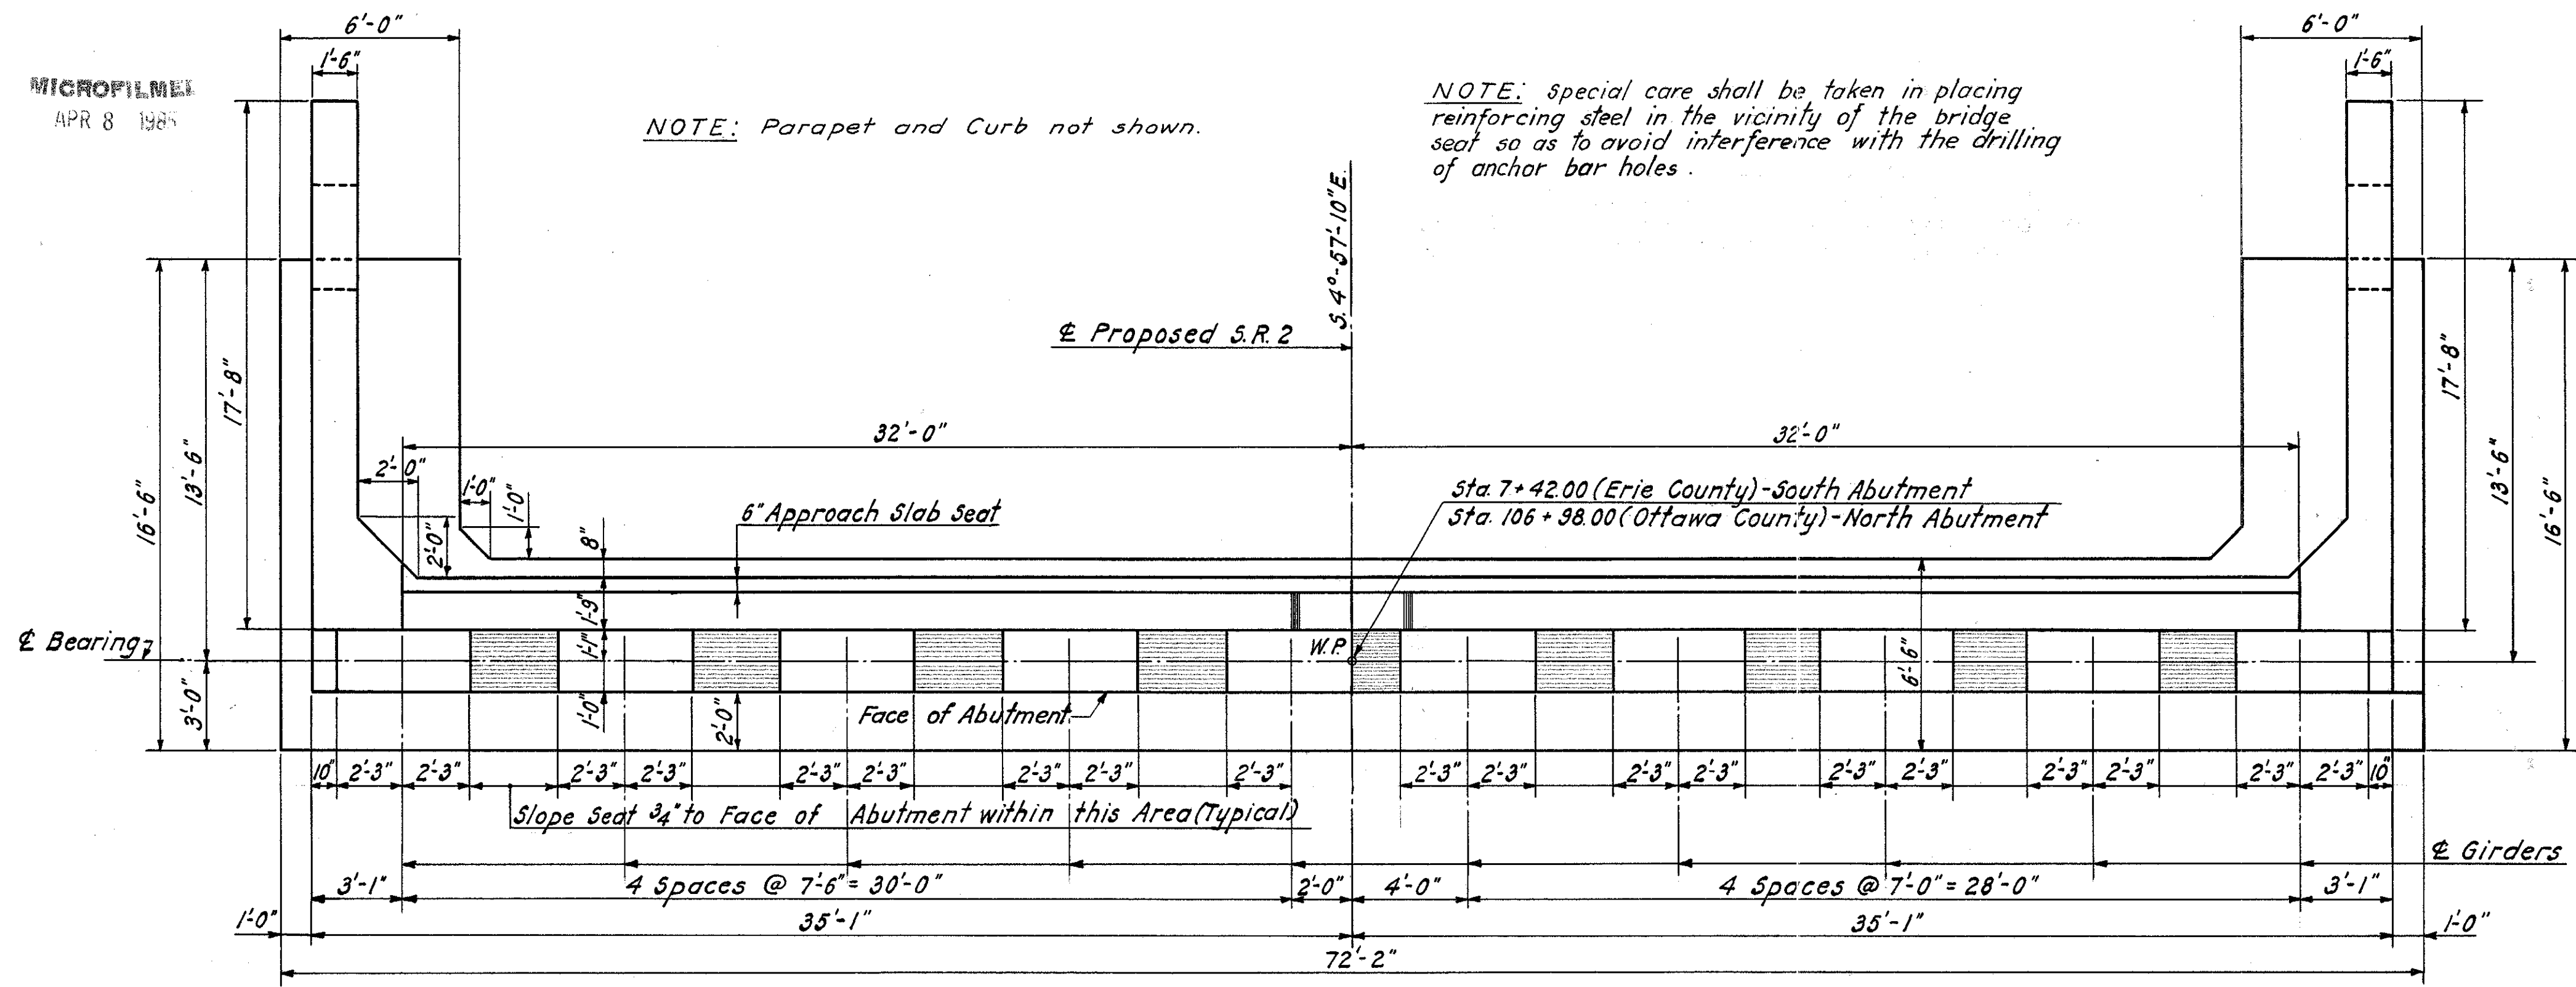 6'-0"
6'-0"
1'-6"
1'-6"
MICROFILMED
APR 8 1985
NOTE: Parapet and Curb not shown.
NOTE: Special care shall be taken in placing
reinforcing steel in the vicinity of the bridge
seat so as to avoid interference with the drilling
of anchor bar holes.
S. 4°-57'-10" E.
℄ Proposed S.R. 2
17'-8"
13'-6"
16'-6"
17'-8"
13'-6"
16'-6"
32'-0"
32'-0"
2'-0"
2'-0"
1'-0"
1'-0"
8"
6" Approach Slab Seat
Sta. 7+42.00 (Erie County)-South Abutment
Sta. 106+98.00 (Ottawa County)-North Abutment
1'-9"
℄ Bearing
1'-1"
W.P.
6'-6"
3'-0"
1'-0"
2'-0"
Face of Abutment
10" 2'-3" 2'-3" 2'-3" 2'-3" 2'-3" 2'-3" 2'-3" 2'-3" 2'-3" 2'-3" 2'-3" 2'-3" 2'-3" 2'-3" 2'-3" 2'-3" 2'-3" 2'-3" 10"
Slope Seat 3/4" to Face of Abutment within this Area (Typical)
℄ Girders
3'-1" 4 Spaces @ 7'-6" = 30'-0" 2'-0" 4'-0" 4 Spaces @ 7'-0" = 28'-0" 3'-1"
1'-0" 35'-1" 35'-1" 1'-0"
72'-2"